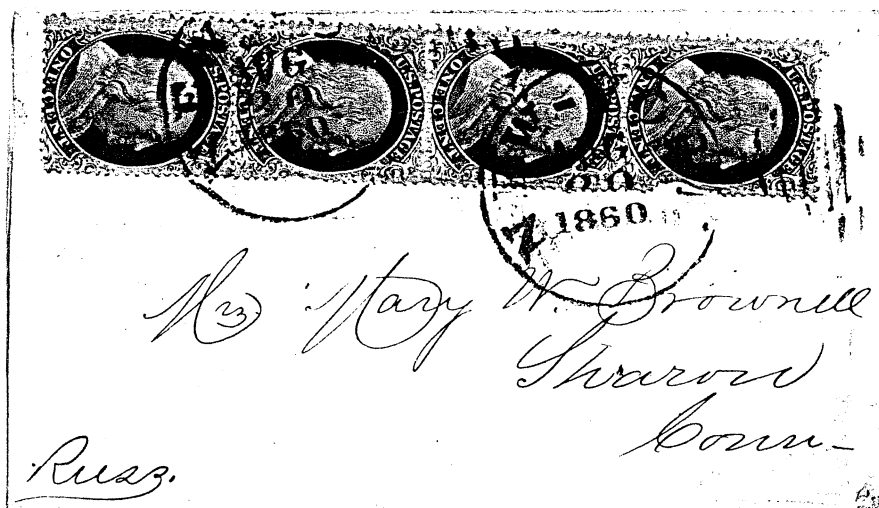 ONE CENT U.S. POSTAGE ONE CENT U.S. POSTAGE ONE CENT U.S. POSTAGE ONE CENT U.S. POSTAGE
1860
Mrs. Mary W. Brownell
Sharon
Conn-
Russ.